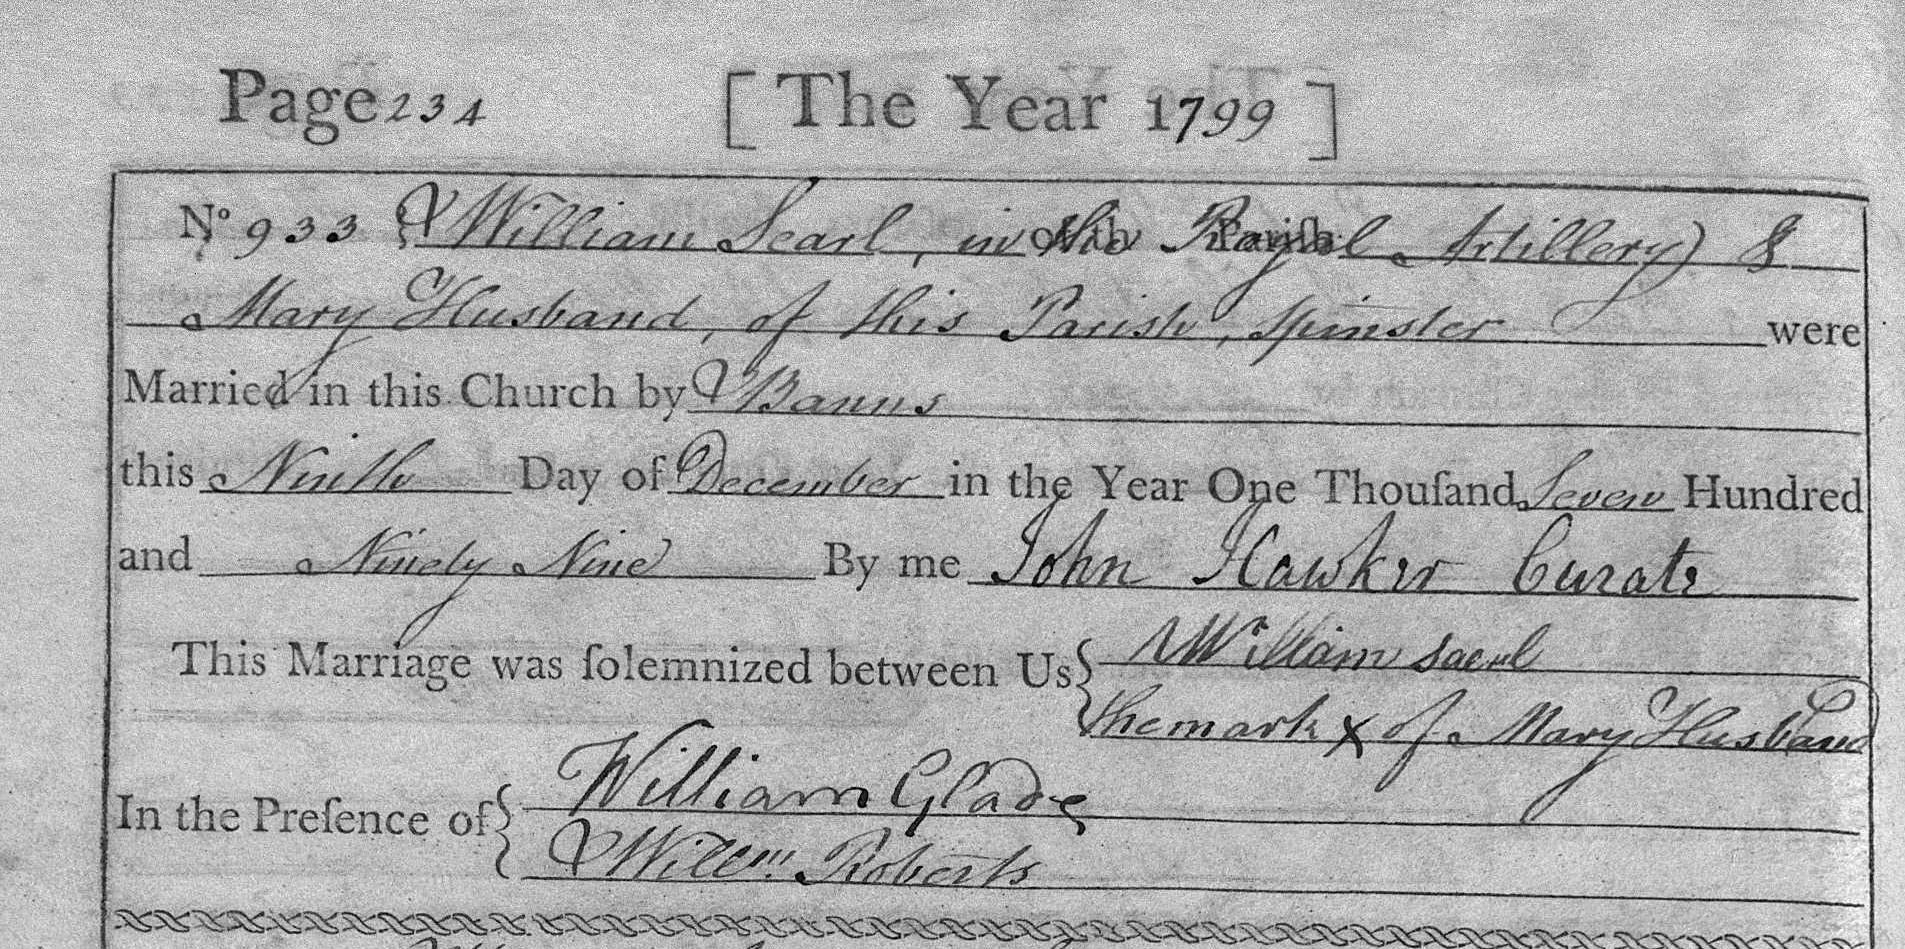 Page 234 [ The Year 1799 ]
No 933 William Searl, in the Royal Artillery) &
Mary Husband, of this Parish, spinster were
Married in this Church by Banns
this Ninth Day of December in the Year One Thouſand Seven Hundred
and Ninety Nine By me John Hawker Curate
This Marriage was ſolemnized between Us { William Saerl
the mark x of Mary Husband
In the Preſence of { William Glade
Willm. Roberts